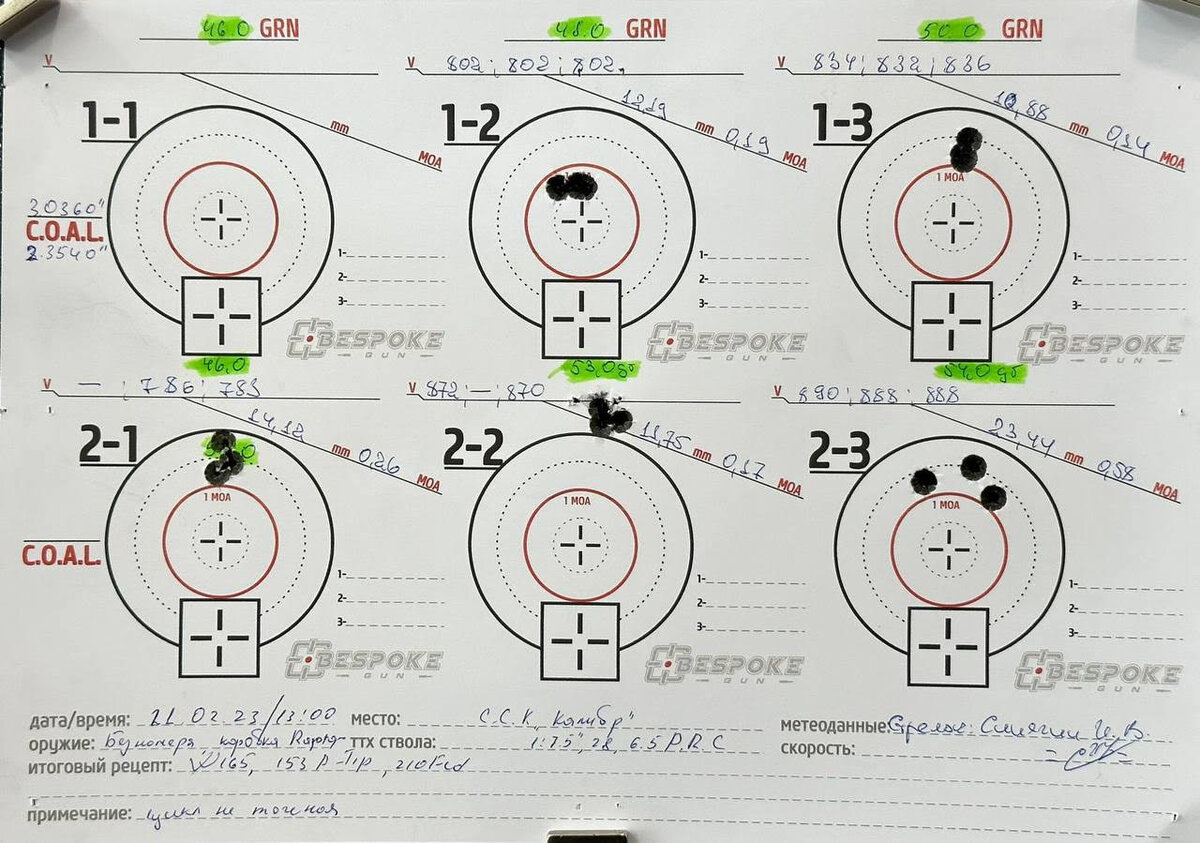 46.0 GRN
48.0 GRN
50.0 GRN
V
V 802; 802; 802,
V 834; 832; 836
mm MOA
12,19 mm 0,19 MOA
mm 0,14 MOA
1-1
1-2
1-3
1 MOA
3.0360"
C.O.A.L.
2.3540"
1-
2-
3-
1-
2-
3-
1-
2-
3-
BESPOKE
GUN
BESPOKE
GUN
BESPOKE
GUN
46,0
53,0gr
54,0 gr
V — ; 786; 783
V 872; — ; 870
V 890; 888; 888
14,12 mm 0,26 MOA
11,75 mm 0,17 MOA
23,44 mm 0,58 MOA
2-1
2-2
2-3
1 MOA
1 MOA
1 MOA
C.O.A.L.
1-
2-
3-
1-
2-
3-
1-
2-
3-
BESPOKE
GUN
BESPOKE
GUN
BESPOKE
GUN
дата/время: 21 02 23/13:00 место: С.С.К „Калибр" метеоданные: Стрелок: Синягин И.В.
оружие: коробка ттх ствола: 1:7.5", 28, 6.5 P.R.C скорость:
итоговый рецепт: 165, 153 A-Tip, 210 Fed
примечание: не точеная